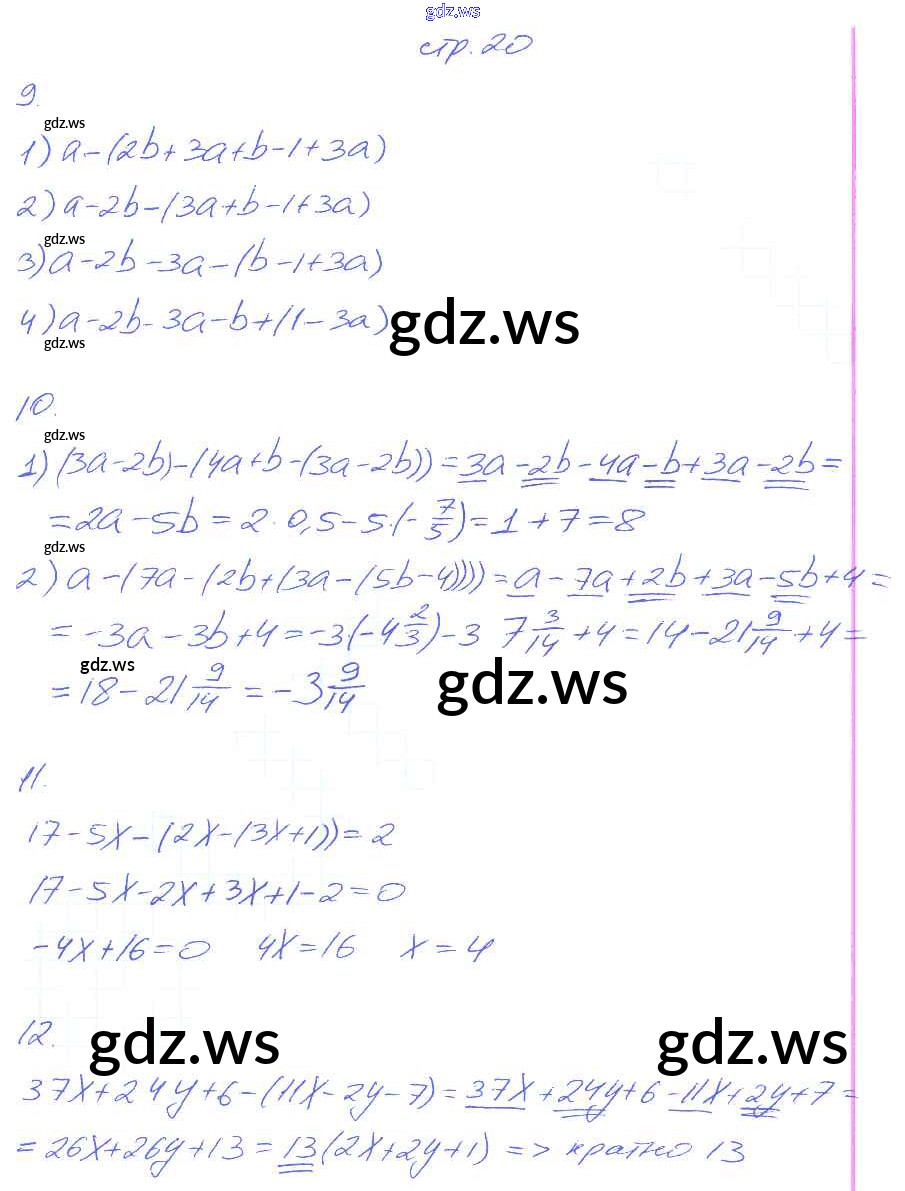 gdz.ws
стр. 20
9.
gdz.ws
1) a-(2b+3a+b-1+3a)
2) a-2b-(3a+b-1+3a)
gdz.ws
3) a-2b-3a-(b-1+3a)
4) a-2b-3a-b+(1-3a) gdz.ws
gdz.ws
10.
gdz.ws
1) (3a-2b)-(4a+b-(3a-2b))=3a-2b-4a-b+3a-2b=
=2a-5b=2·0,5-5·(-7/5)=1+7=8
gdz.ws
2) a-(7a-(2b+(3a-(5b-4))))=a-7a+2b+3a-5b+4=
=-3a-3b+4=-3(-4 2/3)-3 7 3/14+4=14-21 9/14+4=
gdz.ws
=18-21 9/14=-3 9/14 gdz.ws
11.
17-5x-(2x-(3x+1))=2
17-5x-2x+3x+1-2=0
-4x+16=0 4x=16 x=4
12. gdz.ws gdz.ws
37x+24y+6-(11x-2y-7)=37x+24y+6-11x+2y+7=
=26x+26y+13=13(2x+2y+1) => кратно 13